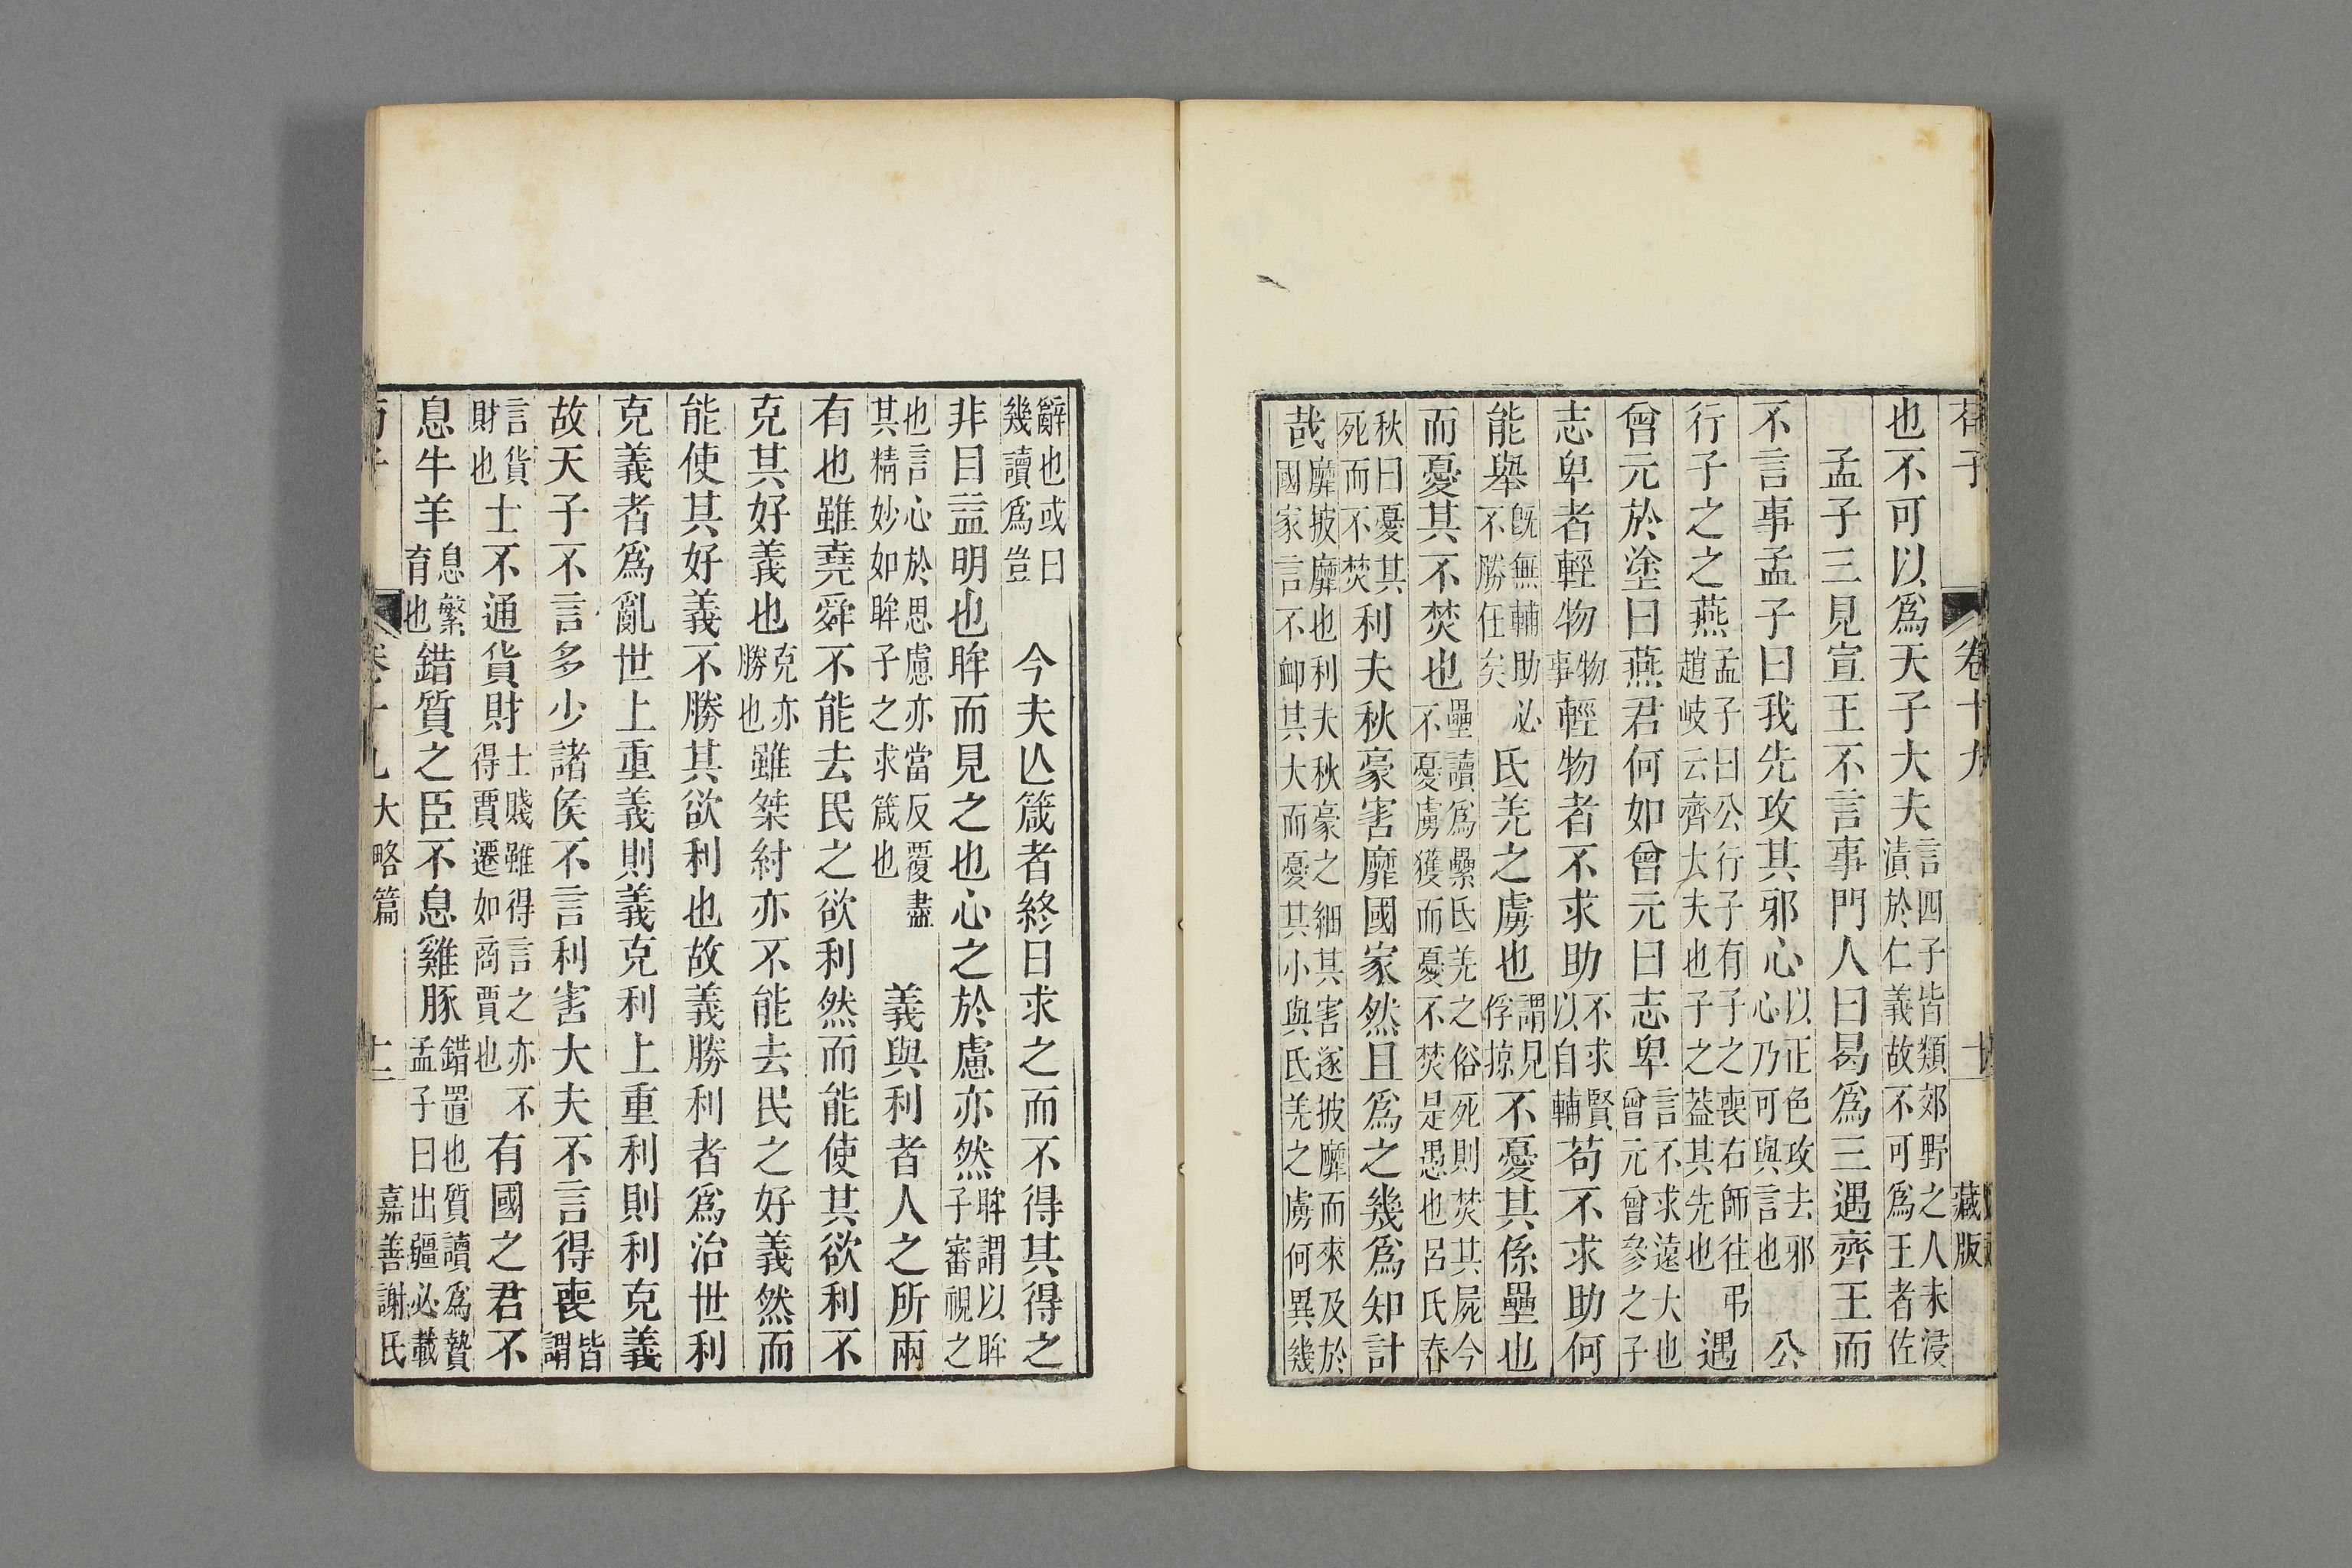 荀子 卷十九 十 藏版
也不可以爲天子大夫言四子皆類郊野之人未浸漬於仁義故不可爲王者佐
孟子三見宣王不言事門人曰曷爲三遇齊王而
不言事孟子曰我先攻其邪心以正色攻去邪心乃可與言也公
行子之之燕孟子曰公行子有子之喪右師往弔趙岐云齊大夫也子之蓋其先也遇
曾元於塗曰燕君何如曾元曰志卑言不求遠大也曾元曾參之子
志卑者輕物物事輕物者不求助不求賢以自輔苟不求助何
能舉旣無輔助必不勝任矣氐羌之虜也謂見俘掠不憂其係壘也
而憂其不焚也壘讀爲纍氐羌之俗死則焚其屍今不憂虜獲而憂不焚是愚也呂氏春
秋曰憂其死而不焚利夫秋豪害靡國家然且爲之幾爲知計
哉靡披靡也利夫秋豪之細其害遂披靡而來及於國家言不卹其大而憂其小與氐羌之虜何異幾
辭也或曰幾讀爲豈今夫亾箴者終日求之而不得其得之
非目益明也眸而見之也心之於慮亦然眸謂以眸子審視之
也言心於思慮亦當反覆盡其精妙如眸子之求箴也義與利者人之所兩
有也雖堯舜不能去民之欲利然而能使其欲利不
克其好義也克亦勝也雖桀紂亦不能去民之好義然而
能使其好義不勝其欲利也故義勝利者爲治世利
克義者爲亂世上重義則義克利上重利則利克義
故天子不言多少諸侯不言利害大夫不言得喪皆謂
言貨財也士不通貨財士賤雖得言之亦不得賈遷如商賈也有國之君不
息牛羊息繁育也錯質之臣不息雞豚錯置也質讀爲贄孟子曰出疆必載
大略篇 十一 嘉善謝氏